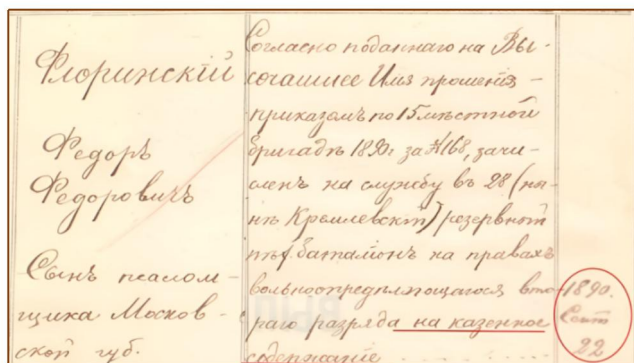 Флоринскій
Федоръ
Федоровичъ
Сынъ псалом-
щика Москов-
ской губ.
Согласно поданнаго на Вы-
сочайшее Имя прошенія -
приказомъ по 15 мѣстной
бригадѣ 1890 г. за № 168, зачи-
сленъ на службу въ 28 (ны-
нѣ Кремлевскій) резервный
пѣх. баталіонъ на правахъ
вольноопредѣляющагося вто-
раго разряда на казенное
содержаніе
1890.
Сент.
22